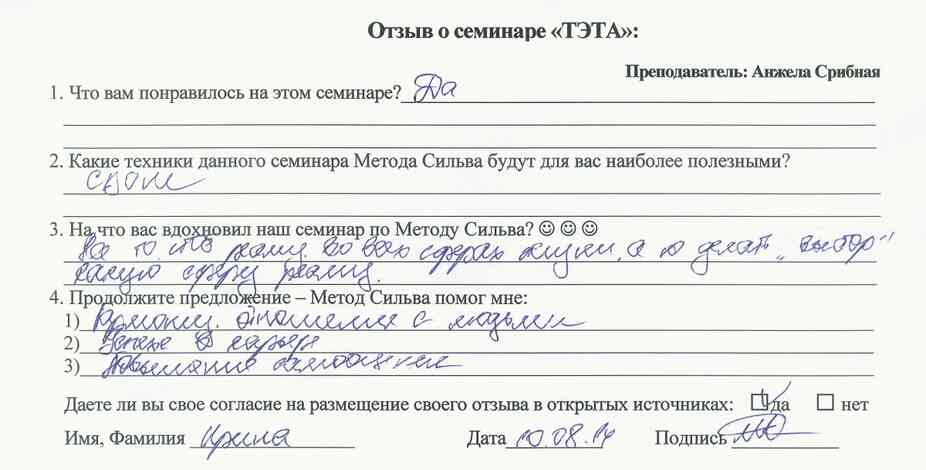 Отзыв о семинаре «ТЭТА»:
Преподаватель: Анжела Срибная
1. Что вам понравилось на этом семинаре? Да
2. Какие техники данного семинара Метода Сильва будут для вас наиболее полезными?
3. На что вас вдохновил наш семинар по Методу Сильва? ☺ ☺ ☺
На то что во всех сферах жизни, а делать „выбор"
какую сферу
4. Продолжите предложение – Метод Сильва помог мне:
1) отношения с людьми
2) Успех в карьере
3) Повышение самооценки
Даете ли вы свое согласие на размещение своего отзыва в открытых источниках: ☑ да ☐ нет
Имя, Фамилия Ирина Дата 10.08.14 Подпись